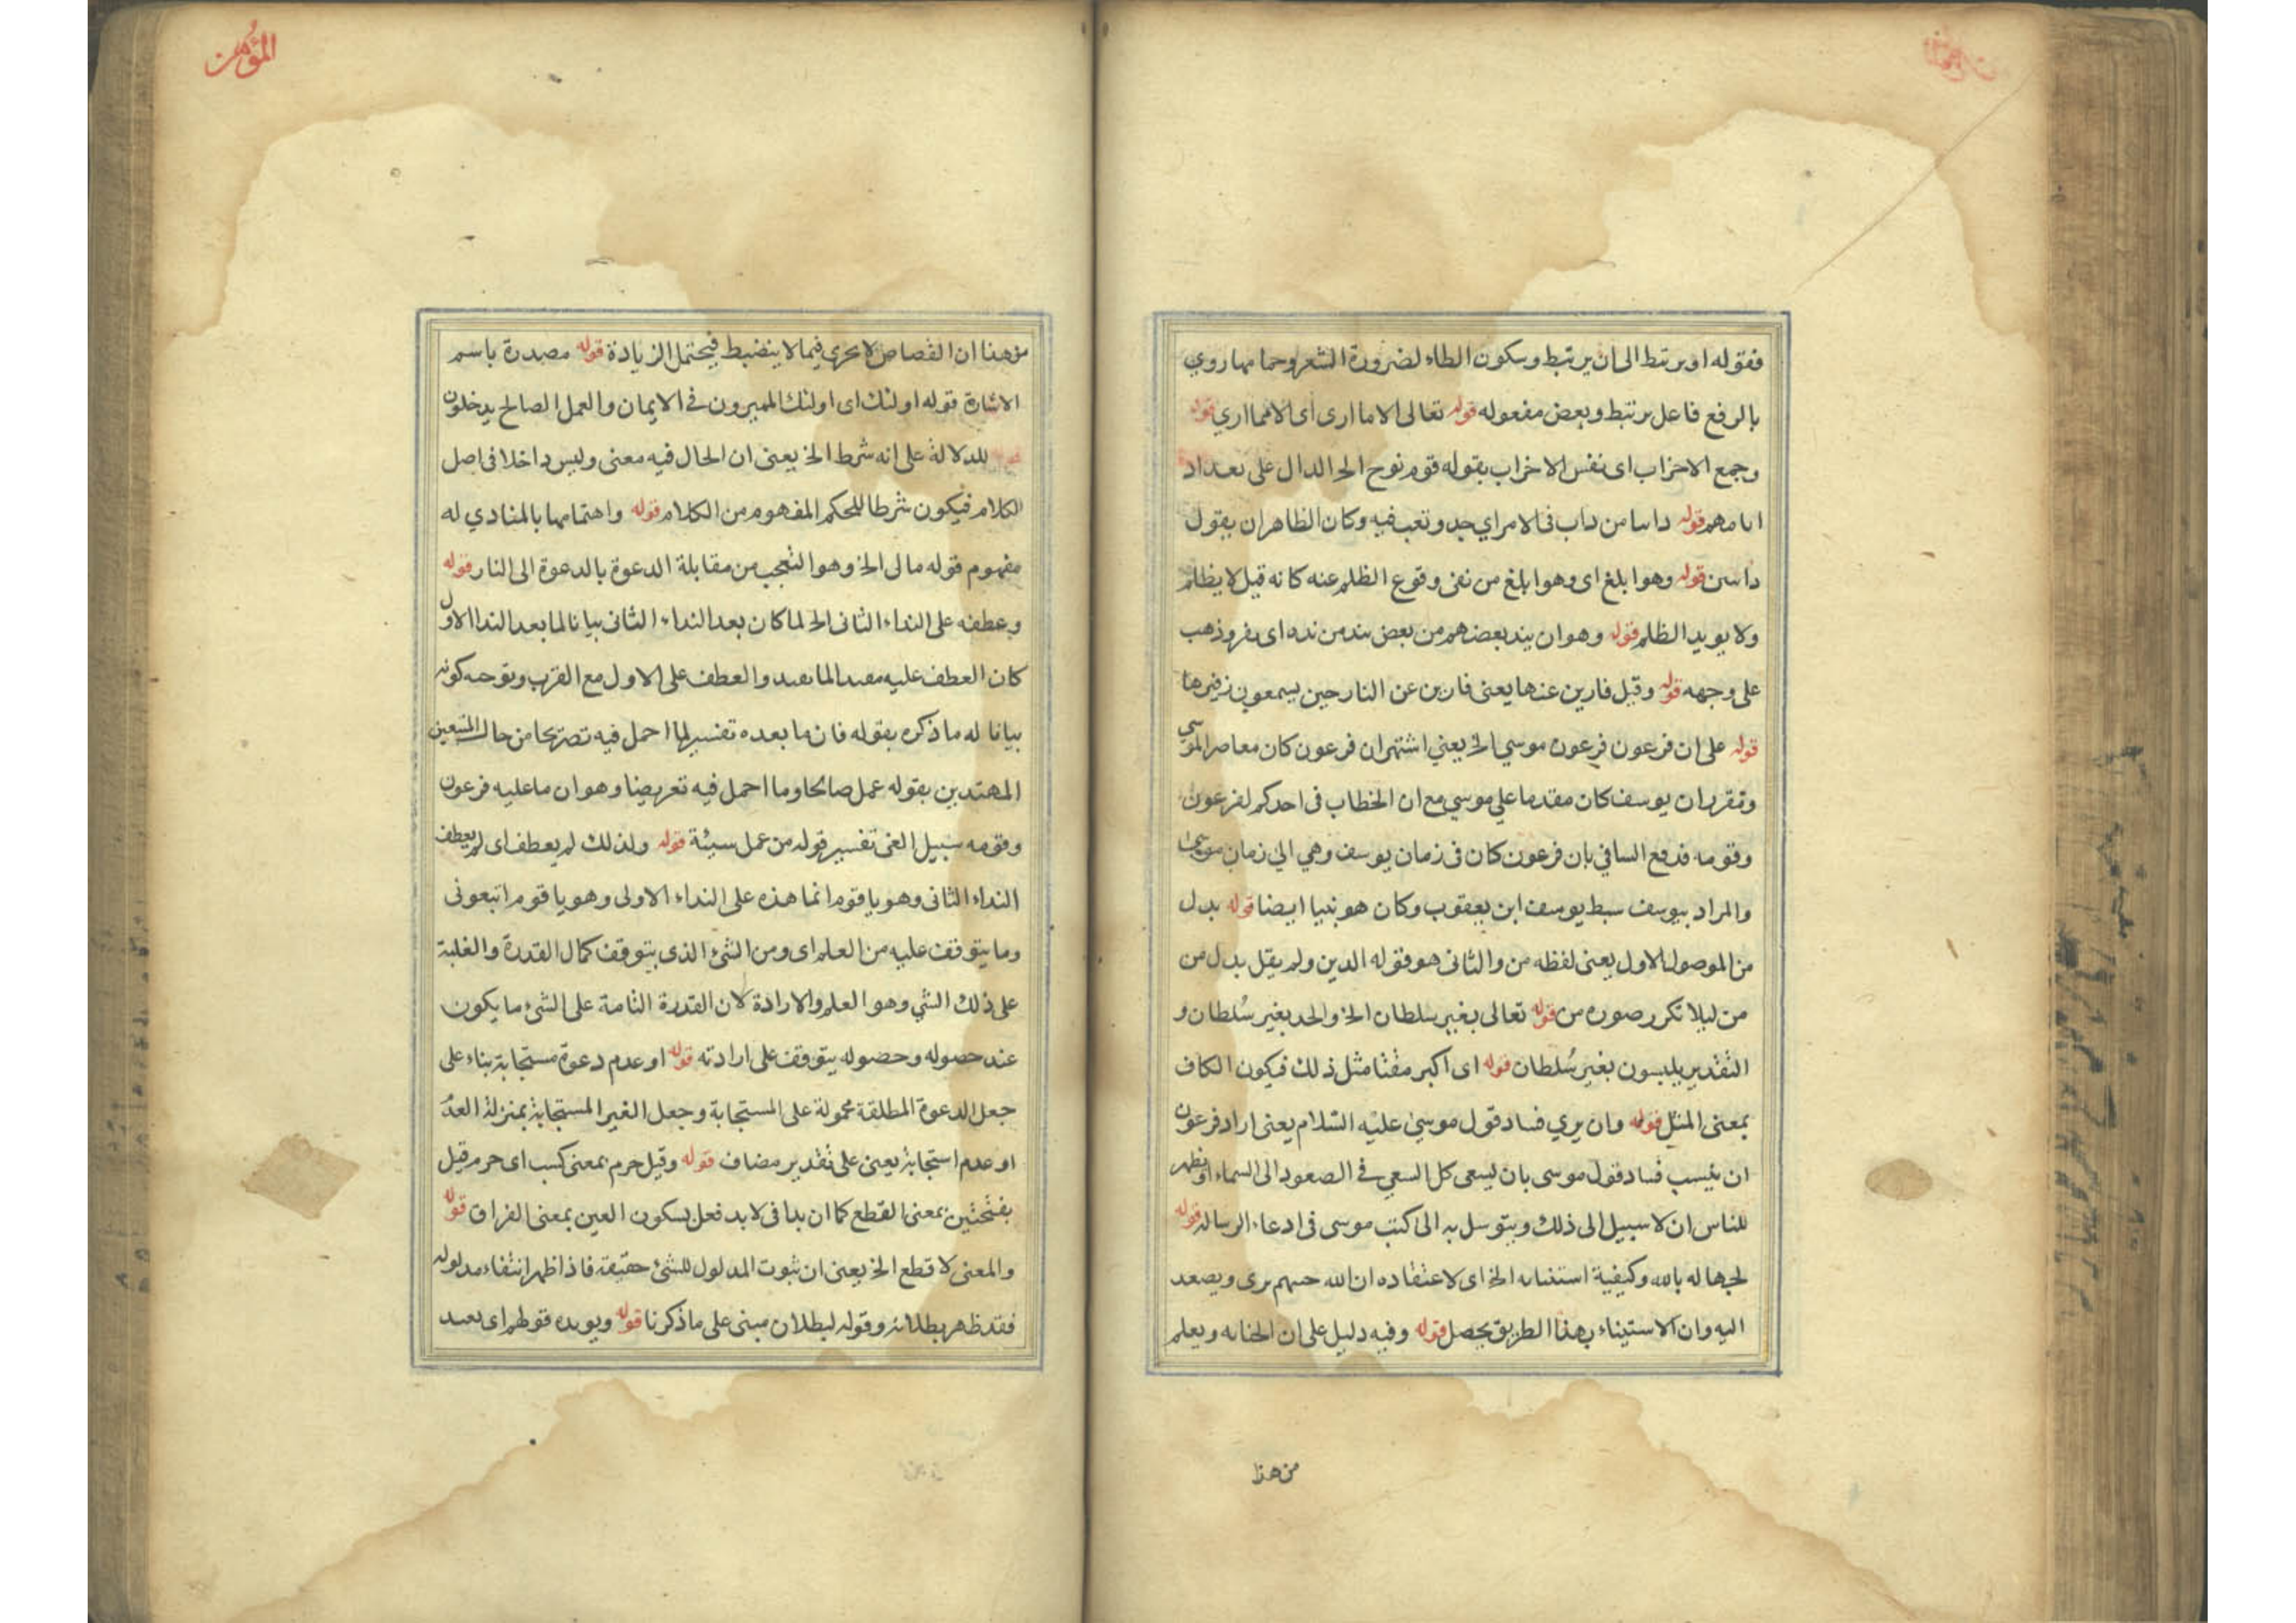 فقوله او يرتبط الى ان يرتبط وسكون الطاء لضرورة الشعر وحمامها روي
بالرفع فاعل يرتبط وبعض مفعوله قوله تعالى الا ما ارى اى الا مما اري قوله
وجمع الاحزاب اى نفس الاحزاب بقوله قوم نوح الخ الدال على تعداد
ايامهم قوله دابا من داب فى الامر اي جد وتعب فيه وكان الظاهر ان يقول
قوله وهو ابلغ اى وهو ابلغ من نفى وقوع الظلم عنه كانه قيل لا يظلم
ولا يريد الظلم قوله وهو ان يند بعضهم من بعض من نده اى نفر وذهب
على وجهه قوله وقيل فارين عنها يعنى فارين عن النار حين يسمعون زفيرها
قوله على ان فرعون فرعون موسي الخ يعني اشتهر ان فرعون كان معاصر الموسي
وتقرر ان يوسف كان مقدما على موسي مع ان الخطاب فى احدكم لفرعون
وقومه فدفع بان فرعون كان فى زمان يوسف الي زمان موسى
والمراد بيوسف سبط يوسف ابن يعقوب وكان هو نبيا ايضا قوله بدل
من الموصول الاول يعنى لفظه من والثانى هو قوله الذين ولم يقل بدل من
من ليلا تكرر صوره من قوله تعالى بغير سلطان الخ والحد بغير سلطان و
التقدير يلبسون بغير سُلطان قوله اى اكبر مقتا مثل ذلك فيكون الكاف
بمعنى المثل قوله وان يري فساد قول موسىٰ عليه السلام يعنى اراد فرعون
ان فساد قول موسى بان ليسعى كل السعي فى الصعود الى السماء
للناس ان لا سبيل الى ذلك ويتوسل به الى كتب موسى فى ادعاء الرساله قوله
لجهاله بالله وكيفية استنبائه الخ اى لاعتقاده ان الله جسم يرى ويصعد
اليه وان الاستيناء بهذا الطريق يحصل قوله وفيه دليل على ان ويعلم
من هذا
المؤمن
من هذا ان القصاص لا يجرى فيما لا ينضبط فيحتمل الزيادة قوله مصدرة باسم
الاشارة قوله اولئك اى اولئك المميزون فى الايمان والعمل الصالح يدخلون
للدلالة على انه شرط الخ يعنى ان الحال فيه معنى وليس داخلا فى اصل
الكلام فيكون شرطا للحكم المفهوم من الكلام قوله واهتمامها بالمنادي له
مفهوم قوله مالى الخ وهو التعجب من مقابلة الدعوة بالدعوة الى النار قوله
وعطفه على النداء الثانى الخ لما كان بعد النداء الثانى بيانا لما بعد الندا الاول
كان العطف عليه مفيدا لما يفيد والعطف على الاول مع القرب وتوجه كونه
بيانا له ما ذكره بقوله فان ما بعده تفسير لما اجمل فيه تصريحا من حال المتبعين
المهتدين بقوله عمل صالحا وما اجمل فيه تعريضا وهو ان ما عليه فرعون
وقومه سبيل الغى تفسير قوله من عمل سيئة قوله ولذلك لم يعطف اى لم يعطف
النداء الثانى وهو يا قوم انما هذه على النداء الاولى وهو يا قوم اتبعونى
وما يتوقف عليه من العلم اى ومن الشئ الذى يتوقف كمال القدرة والغلبة
على ذلك الشي وهو العلم والارادة لان القدرة التامة على الشئ ما يكون
عند حصوله وحصوله يتوقف على ارادته قوله او عدم دعوة مستجابة بناء على
جعل الدعوة المطلقة محمولة على المستجابة وجعل الغير المستجابة بمنزلة العدم
او عدم استجابة يعنى على تقدير مضاف قوله وقيل جرم بمعنى كسب اى جرم قيل
بفتحتين بمعنى القطع كما ان بدا فى لا بد فعل بسكون العين بمعنى الفراق قوله
والمعنى لا قطع الخ يعنى ان ثبوت المدلول للشئ حقيقة فاذا ظهر انتفاء مدلوله
فقد ظهر بطلانه وقوله لبطلان مبنى على ما ذكرنا قوله ويويده قولهم اى